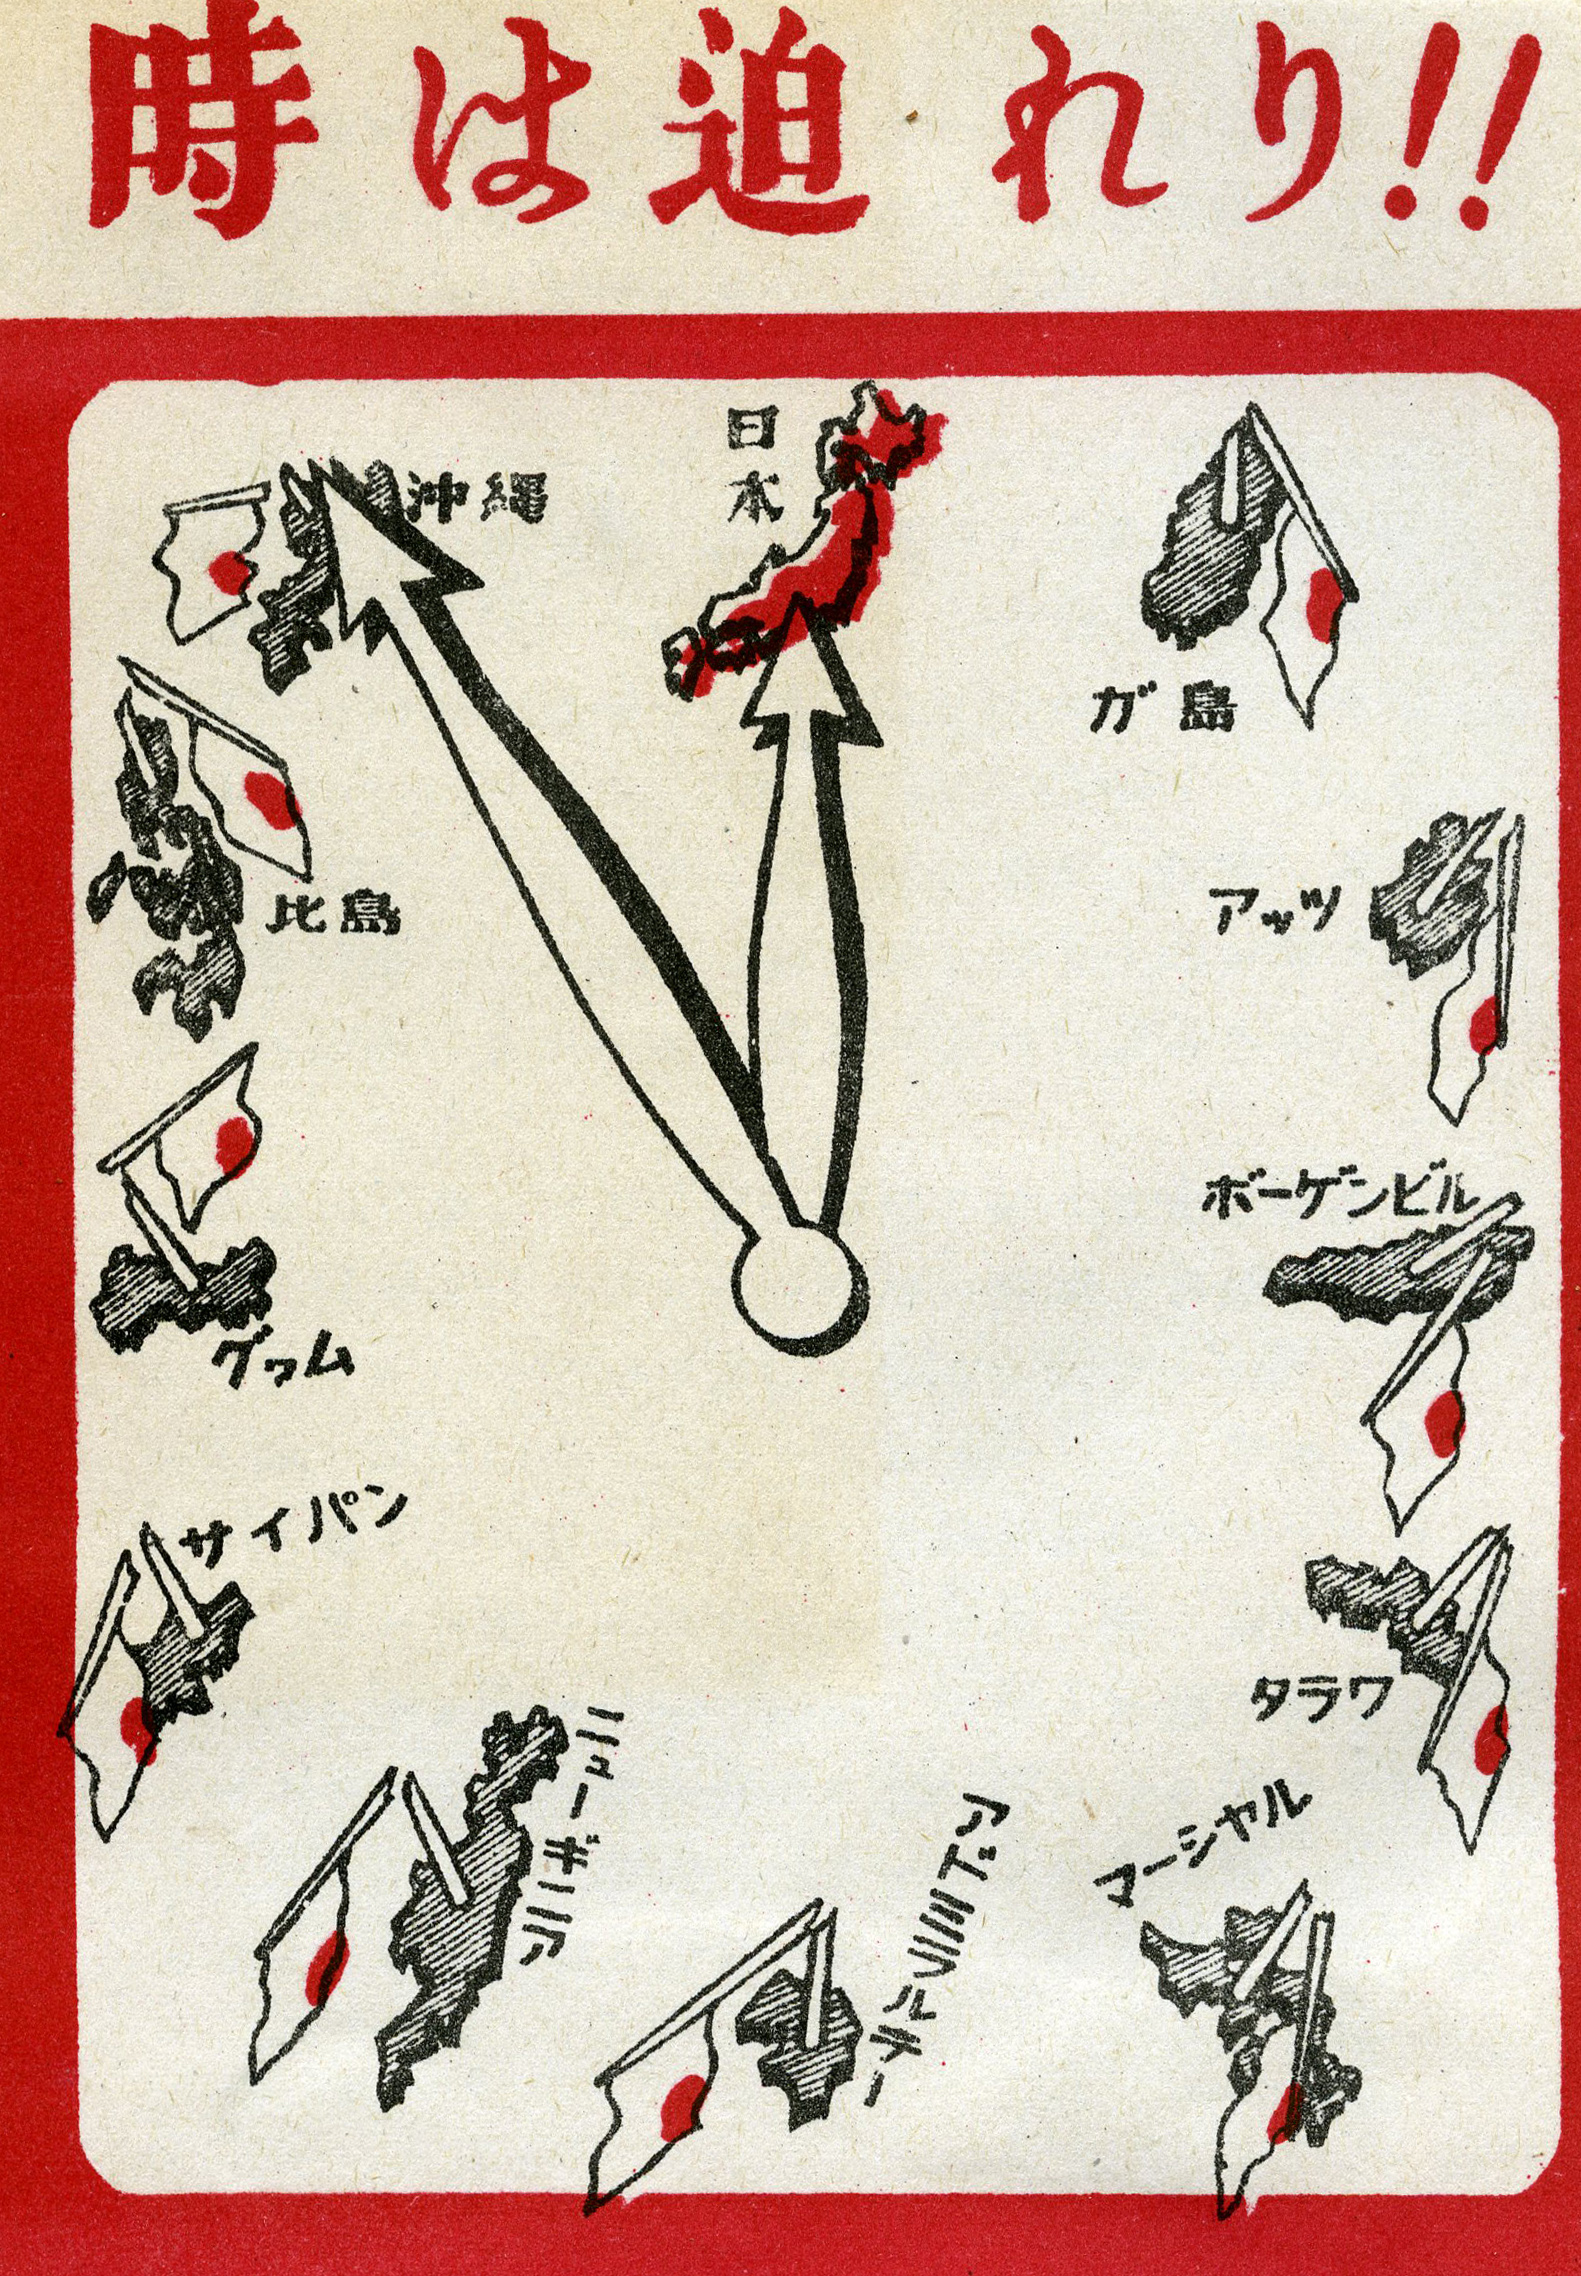 時は迫れり!!
日本
ガ島
アッツ
ボーゲンビル
タラワ
マーシャル
アドミラルチー
ニューギニア
サイパン
グヮム
比島
沖縄